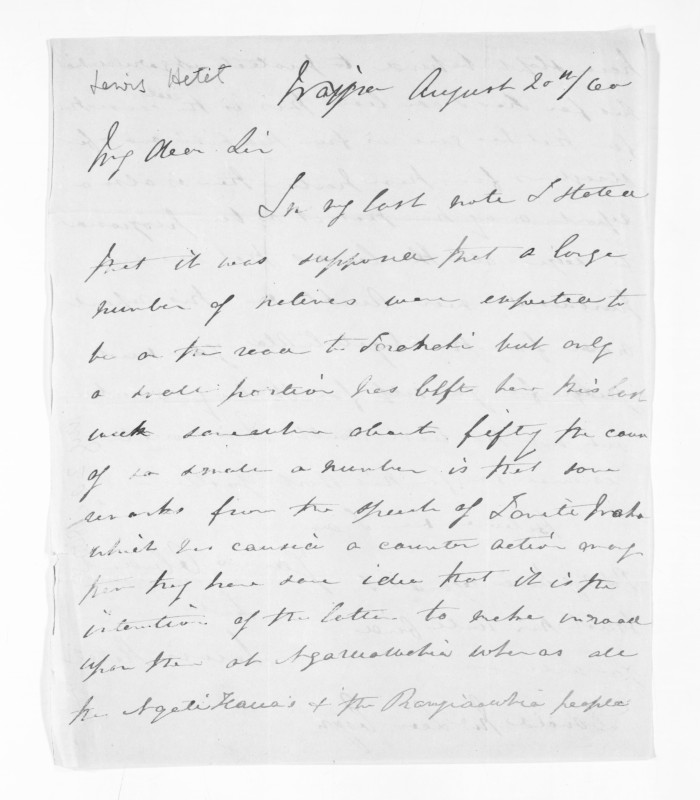 Lewis Hetet
August 20th/60
My dear Sir
In my last note I stated
that it was supposed that a large
number of natives were expected to
be on the road to Taranaki but only
a small portion has left here this last
week somewhere about fifty the cause
of so small a number is that some
remarks from the speech of Tomiti
which has caused a counter action among
them they have some idea that it is the
intention of the latter to make inroad
upon them at whereas all
the Ngati Haua's & the Rangiaowhia people